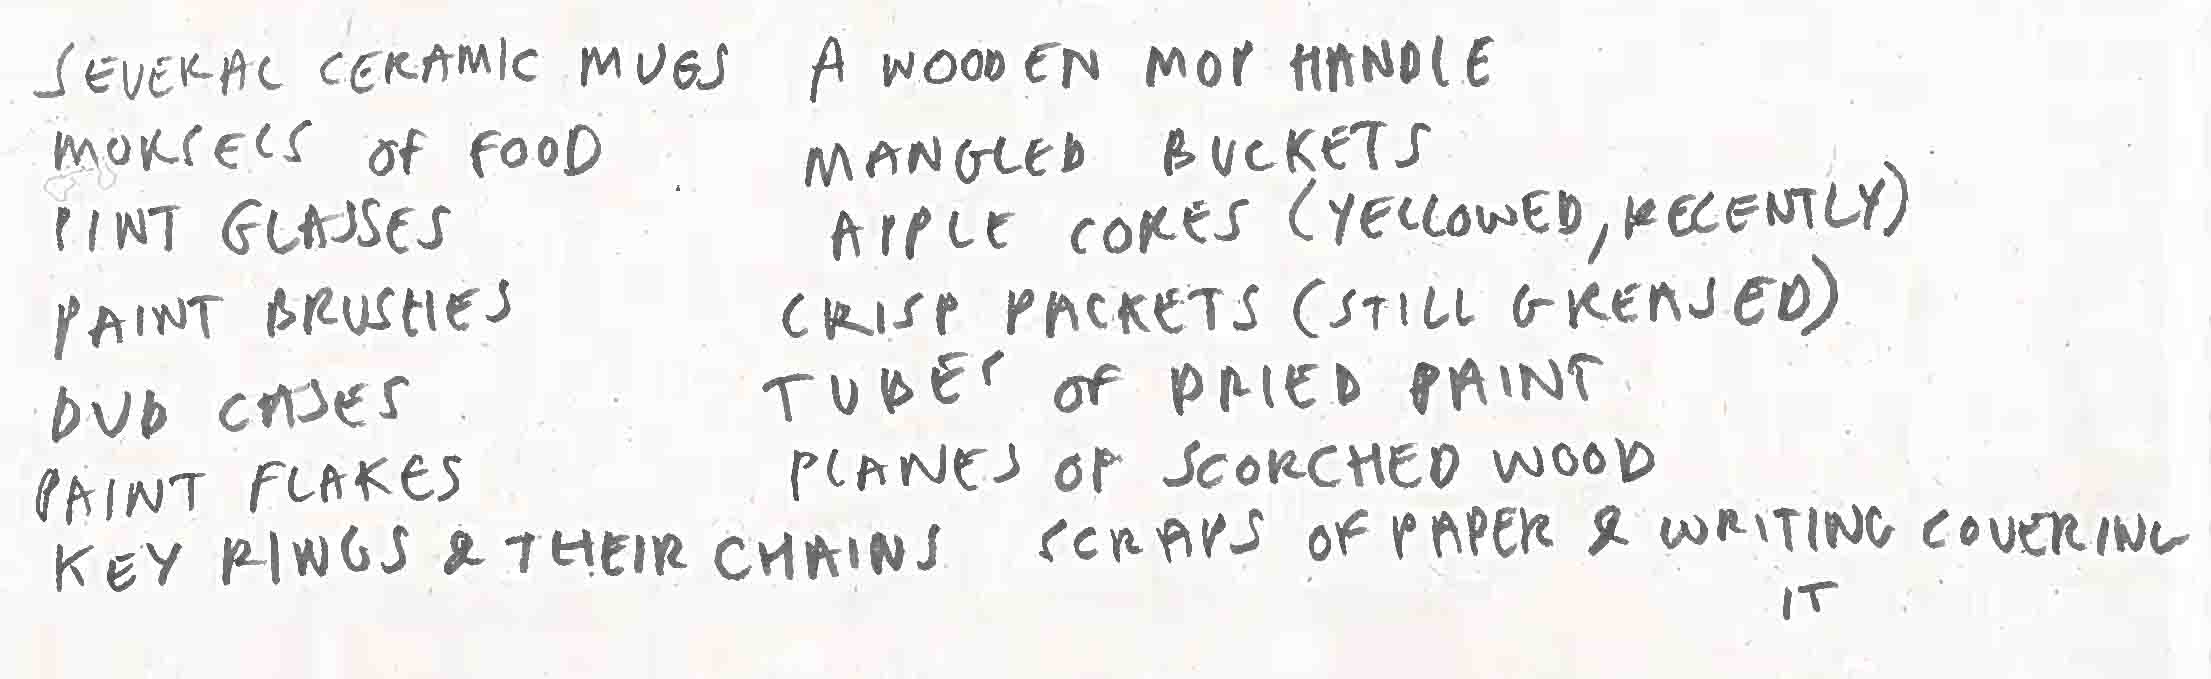 SEVERAL CERAMIC MUGS A WOODEN MOP HANDLE
MORSELS OF FOOD MANGLED BUCKETS
PINT GLASSES APPLE CORES (YELLOWED, RECENTLY)
PAINT BRUSHES CRISP PACKETS (STILL GREASED)
DVD CASES TUBES OF DRIED PAINT
PAINT FLAKES PLANES OF SCORCHED WOOD
KEY RINGS & THEIR CHAINS SCRAPS OF PAPER & WRITING COVERING
IT